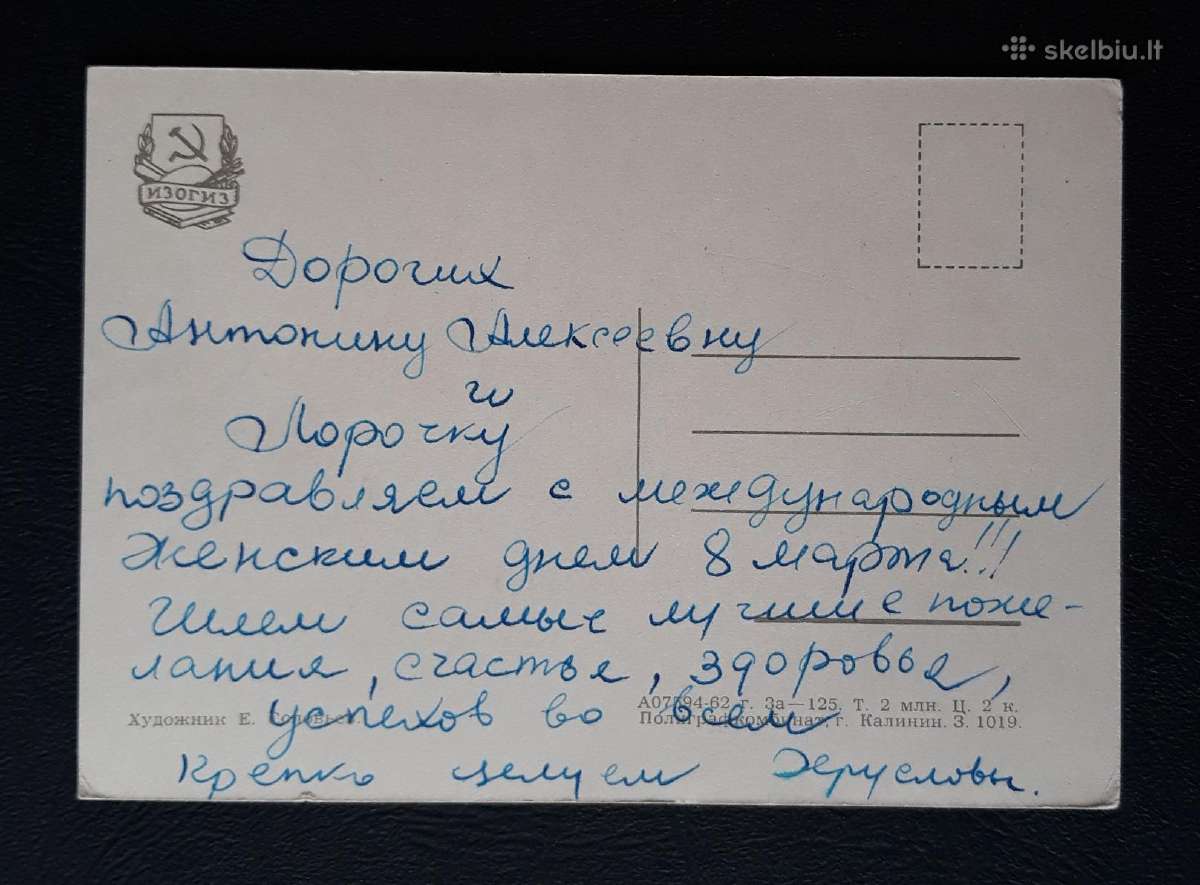 skelbiu.lt
ИЗОГИЗ
Дорогих
Антонину Алексеевну
и
Лорочку
поздравляем с международным
Женским днем 8 марта!!!
Шлем самые лучшие поже-
лания, счастья, здоровья,
успехов во всем
Художник Е.
А07594-62 г. За—125. Т. 2 млн. Ц. 2 к.
Полиграфкомбинат, г. Калинин. З. 1019.
Крепко целуем